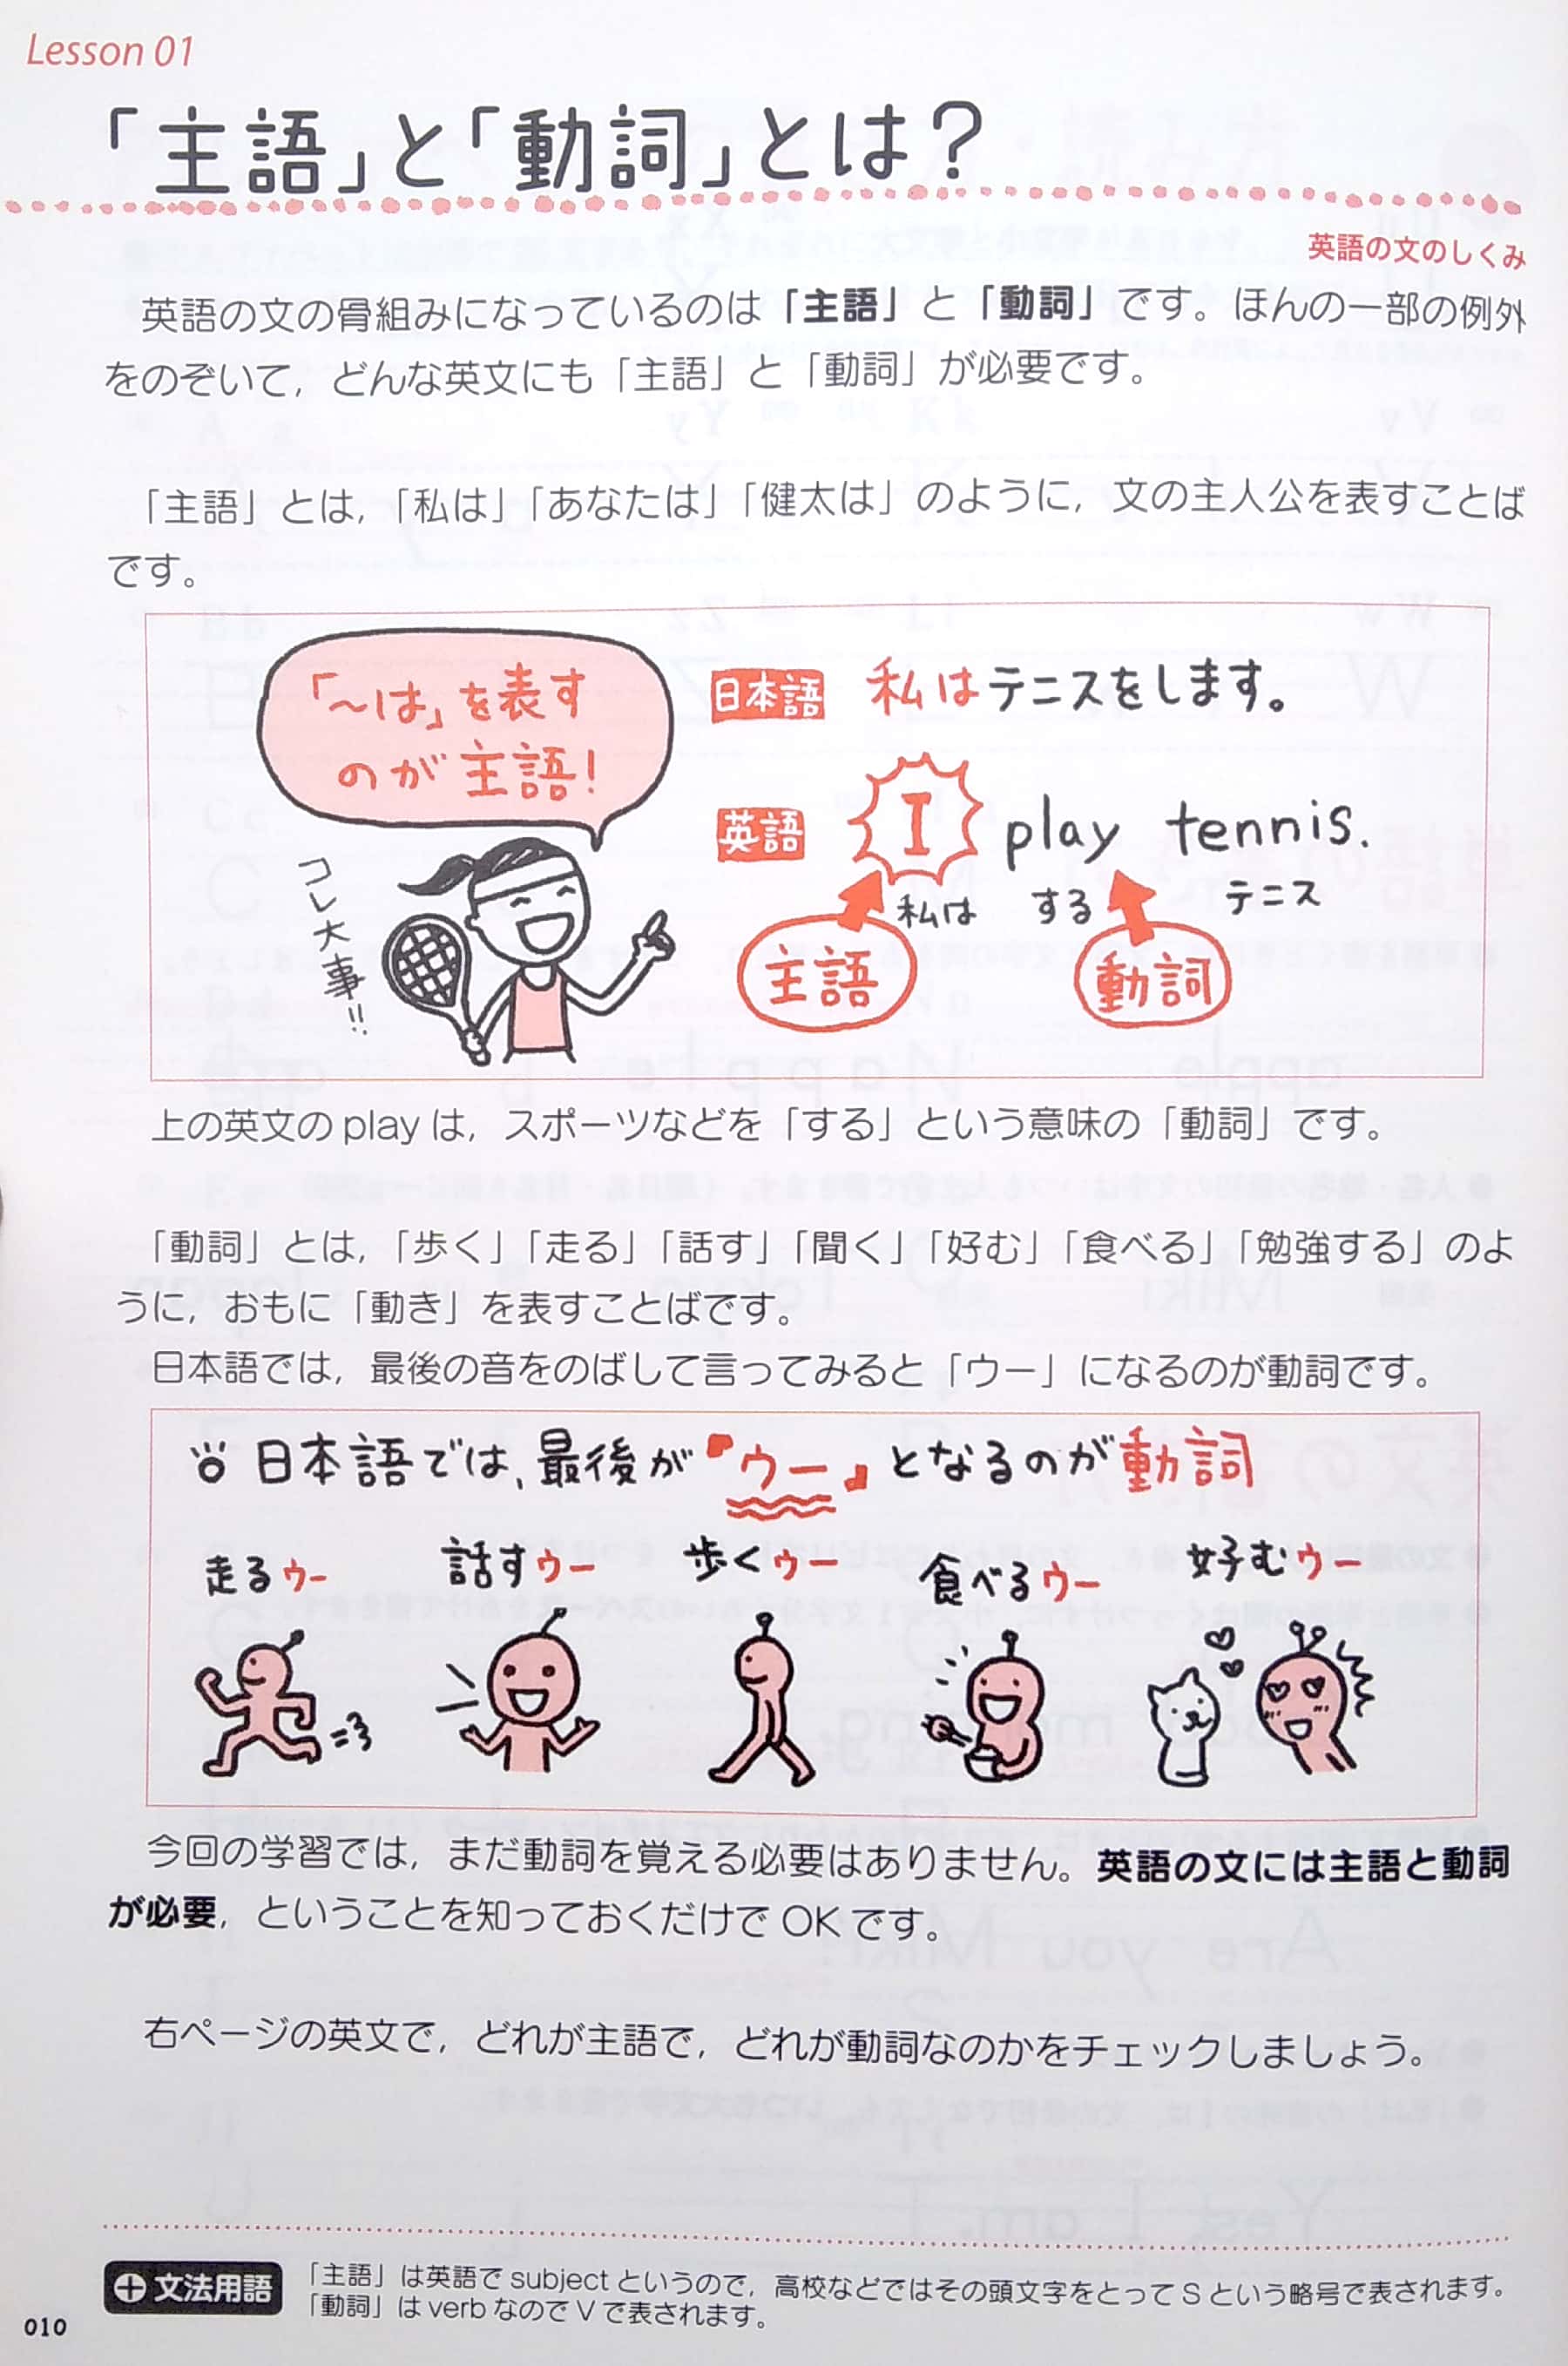 Lesson 01
「主語」と「動詞」とは？
英語の文のしくみ
英語の文の骨組みになっているのは「主語」と「動詞」です。ほんの一部の例外
をのぞいて，どんな英文にも「主語」と「動詞」が必要です。
「主語」とは，「私は」「あなたは」「健太は」のように，文の主人公を表すことば
です。
「〜は」を表す
のが主語！
コレ大事!!
日本語 私はテニスをします。
英語 I play tennis.
私は する テニス
主語 動詞
上の英文の play は，スポーツなどを「する」という意味の「動詞」です。
「動詞」とは，「歩く」「走る」「話す」「聞く」「好む」「食べる」「勉強する」のよ
うに，おもに「動き」を表すことばです。
日本語では，最後の音をのばして言ってみると「ウー」になるのが動詞です。
日本語では、最後が『ウー』となるのが動詞
走るゥー 話すゥー 歩くゥー 食べるゥー 好むゥー
今回の学習では，まだ動詞を覚える必要はありません。英語の文には主語と動詞
が必要，ということを知っておくだけで OK です。
右ページの英文で，どれが主語で，どれが動詞なのかをチェックしましょう。
＋文法用語
「主語」は英語で subject というので，高校などではその頭文字をとって S という略号で表されます。
「動詞」は verb なので V で表されます。
010